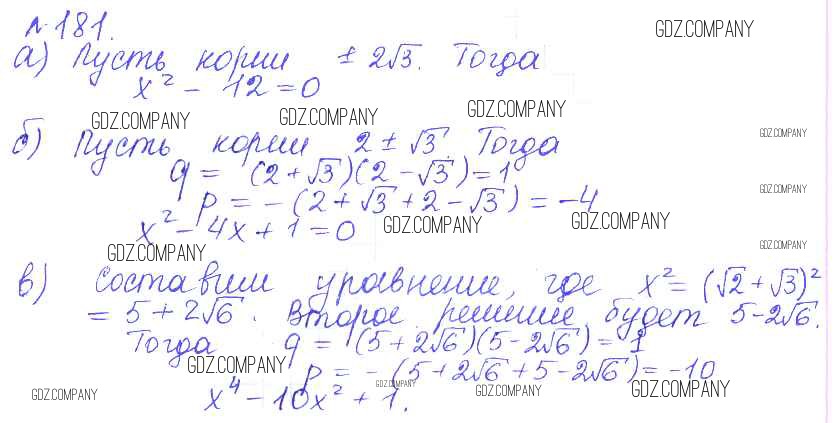 №181.
GDZ.COMPANY
а) Пусть корни ± 2√3. Тогда
x² - 12 = 0
GDZ.COMPANY GDZ.COMPANY GDZ.COMPANY
б) Пусть корни 2 ± √3 Тогда
GDZ.COMPANY
q = (2 + √3)(2 - √3) = 1
GDZ.COMPANY
p = - (2 + √3 + 2 - √3) = -4
x² - 4x + 1 = 0
GDZ.COMPANY GDZ.COMPANY
GDZ.COMPANY GDZ.COMPANY
в) Составим уравнение, где x² = (√2 + √3)²
= 5 + 2√6. Второе решение будет 5 - 2√6.
Тогда q = (5 + 2√6)(5 - 2√6) = 1
GDZ.COMPANY
p = - (5 + 2√6 + 5 - 2√6) = -10
GDZ.COMPANY GDZ.COMPANY GDZ.COMPANY GDZ.COMPANY
x⁴ - 10x² + 1.